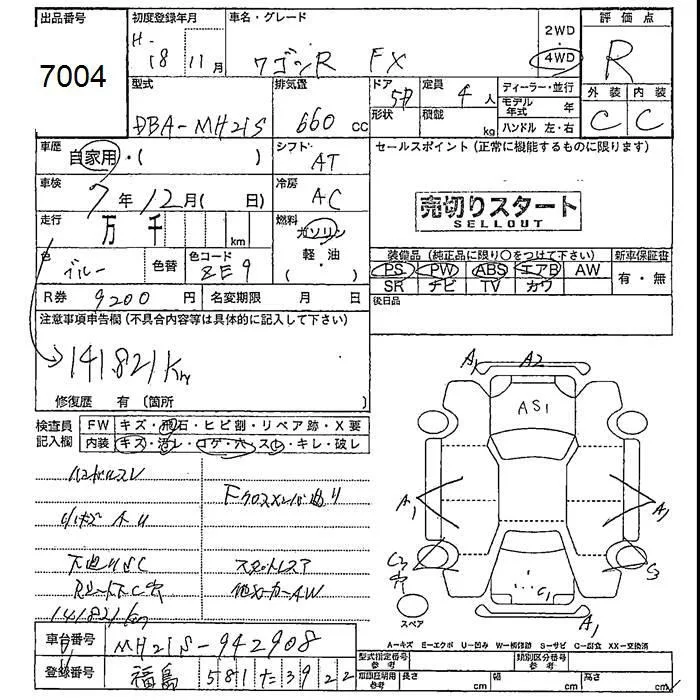 出品番号 初度登録年月 車名・グレード 2WD・ 評価点
7004 H-18 11月 ワゴンR FX 4WD R
型式 排気量 ドア 5D 定員 4人 ディーラー・並行 外装 内装
形状 積載 kg モデル年式 年
DBA-MH21S 660cc ハンドル 左・右 C C
車歴 自家用・( ) シフト AT セールスポイント(正常に機能するものに限ります)
車検 7年12月( 日) 冷房 AC
売切りスタート
SELLOUT
走行 万 千 km 燃料 ガソリン
軽・油
( )
色 ブルー 色替 色コード ZE9
装備品(純正品に限り○をつけて下さい) 新車保証書
PS PW ABS エアB AW 有・無
SR ナビ TV カワ
R券 9200円 名変期限 月 日 後日品
注意事項申告欄(不具合内容等は具体的に記入して下さい)
141821Km
修復歴 有(箇所 )
検査員 FW キズ・飛石・ヒビ割・リペア跡・X要
記入欄 内装 キズ・汚レ・コゲ・穴・スレ・キレ・破レ
ハンドルスレ
Fクロスメンバー曲り
小キズ
下廻りSC スタットレス
他メーカーAW
141821Km
A1 A2
AS1
A1 A1
C2 穴 S
C1
スペア A1
A-キズ E-エクボ U-凹み W-板修跡 S-サビ C-腐食 XX-交換済
車台番号 MH21S-942908
登録番号 福島 581 た 3922
型式指定番号 参考 類別区分番号 参考
車庫証明用 参考 長さ cm 幅 cm 高さ cm